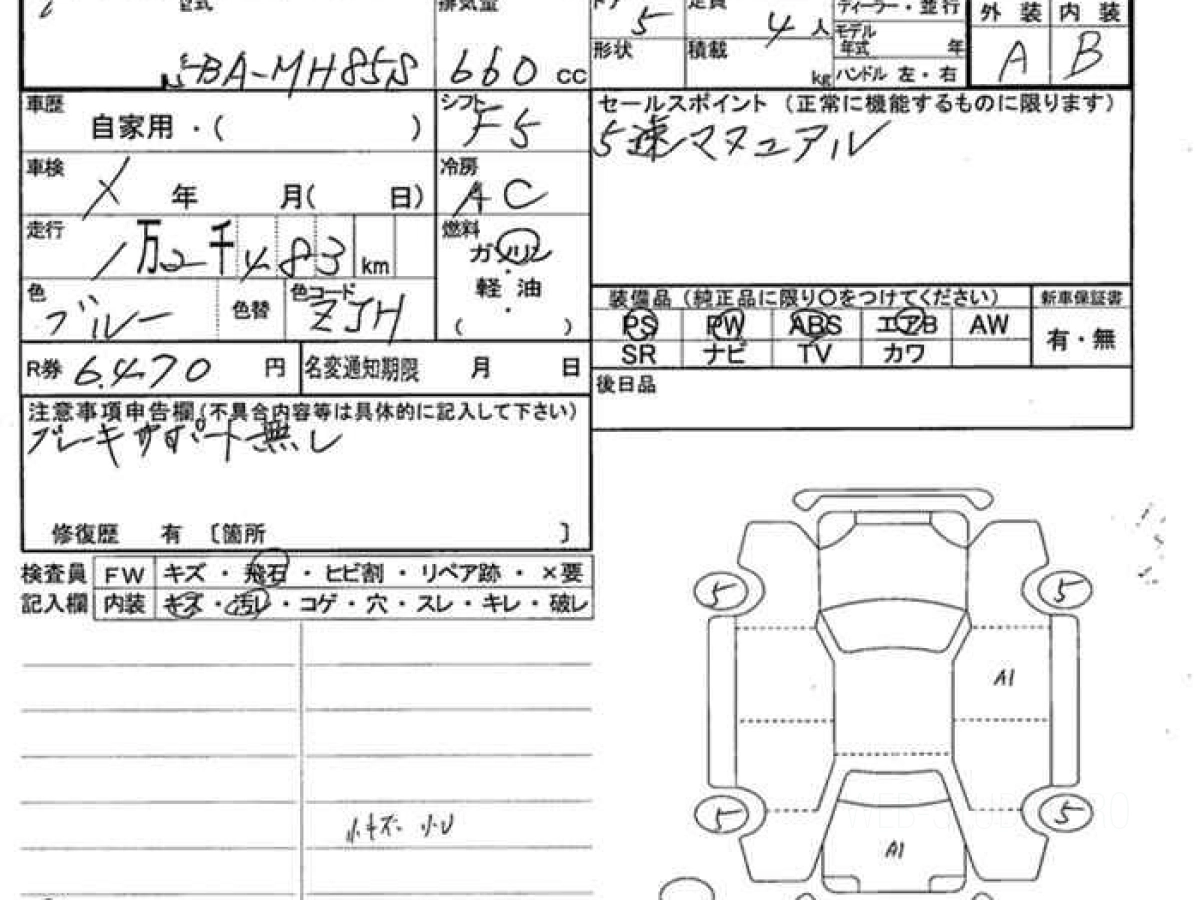 型式 排気量 ドア 5 定員 4人 ディーラー・並行 外装 内装
モデル年式 年
5BA-MH85S 660 cc 形状 積載 kg ハンドル 左・右 A B
車歴 自家用・( ) シフト F5 セールスポイント (正常に機能するものに限ります)
5速マニュアル
車検 X 年 月( 日) 冷房 AC
走行 1万2千483 km 燃料 ガソリン
軽油
( )
色 ブルー 色替 色コード ZJH 装備品 (純正品に限り〇をつけてください) 新車保証書
PS PW ABS エアB AW 有・無
SR ナビ TV カワ
R券 6.470 円 名変通知期限 月 日 後日品
注意事項申告欄(不具合内容等は具体的に記入して下さい)
ブレーキサポート無し
修復歴 有 〔箇所 〕
検査員 FW キズ・飛石・ヒビ割・リペア跡・×要
記入欄 内装 キズ・汚レ・コゲ・穴・スレ・キレ・破レ
5 5
A1
小キズ 小U
5 5
A1